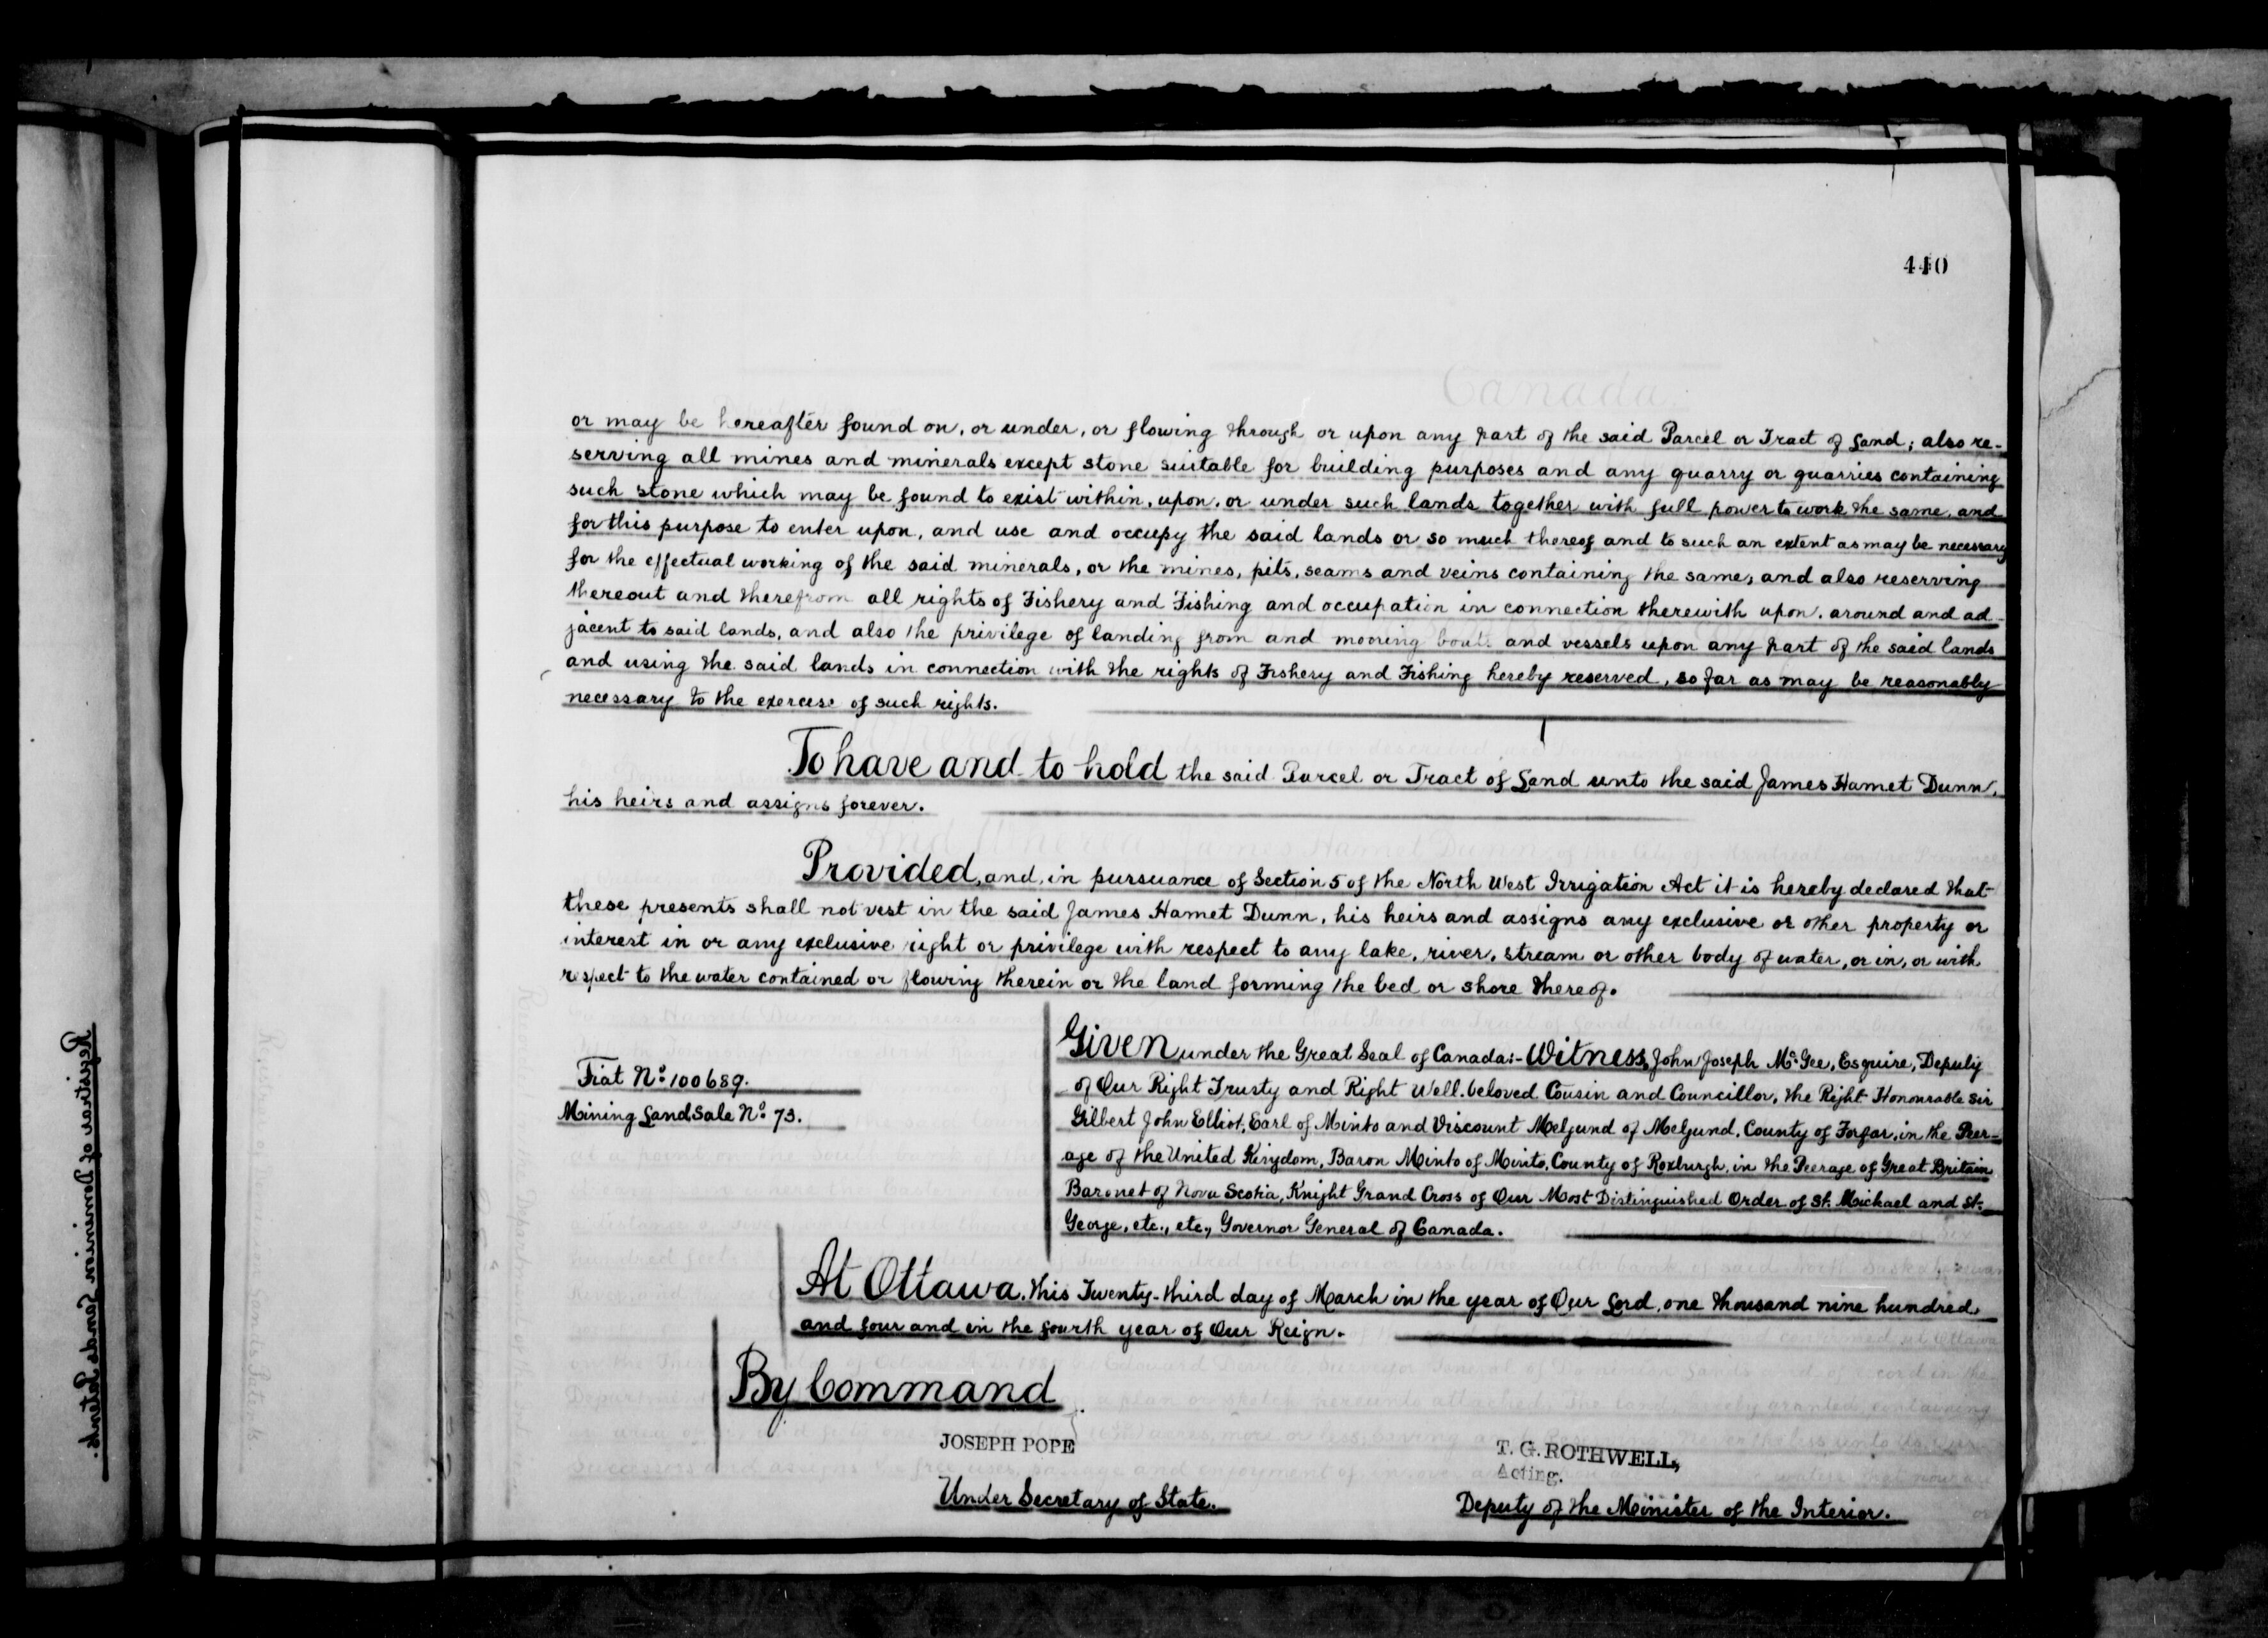 440
or may be hereafter found on, or under, or flowing through or upon any part of the said Parcel or Tract of Land; also re-
serving all mines and minerals except stone suitable for building purposes and any quarry or quarries containing
such stone which may be found to exist within, upon, or under such lands together with full power to work the same, and
for this purpose to enter upon, and use and occupy the said lands or so much thereof and to such an extent as may be necessary
for the effectual working of the said minerals, or the mines, pits, seams and veins containing the same, and also reserving
thereout and therefrom all rights of Fishery and Fishing and occupation in connection therewith upon, around and ad-
jacent to said lands, and also the privilege of landing from and mooring boats and vessels upon any part of the said lands
and using the said lands in connection with the rights of Fishery and Fishing hereby reserved, so far as may be reasonably
necessary to the exercise of such rights.
To have and to hold the said Parcel or Tract of Land unto the said James Hamet Dunn,
his heirs and assigns forever.
Provided, and, in pursuance of Section 5 of the North West Irrigation Act it is hereby declared that
these presents shall not vest in the said James Hamet Dunn, his heirs and assigns any exclusive or other property or
interest in or any exclusive right or privilege with respect to any lake, river, stream or other body of water, or in, or with
respect to the water contained or flowing therein or the land forming the bed or shore thereof.
Fiat No. 100689.
Mining Land Sale No. 73.
Given under the Great Seal of Canada:- Witness, John Joseph McGee, Esquire, Deputy
of Our Right Trusty and Right Well-beloved Cousin and Councillor, the Right Honourable Sir
Gilbert John Elliot, Earl of Minto and Viscount Melgund of Melgund, County of Forfar, in the Peer-
age of the United Kingdom, Baron Minto of Minto, County of Roxburgh, in the Peerage of Great Britain
Baronet of Nova Scotia, Knight Grand Cross of Our Most Distinguished Order of St. Michael and St.
George, etc., etc., Governor General of Canada.
At Ottawa, this Twenty-third day of March in the year of Our Lord, one thousand nine hundred
and four and in the fourth year of Our Reign.
By Command
JOSEPH POPE
Under Secretary of State.
T. G. ROTHWELL,
Acting.
Deputy of the Minister of the Interior.
Registrar of Dominion Lands Patents.